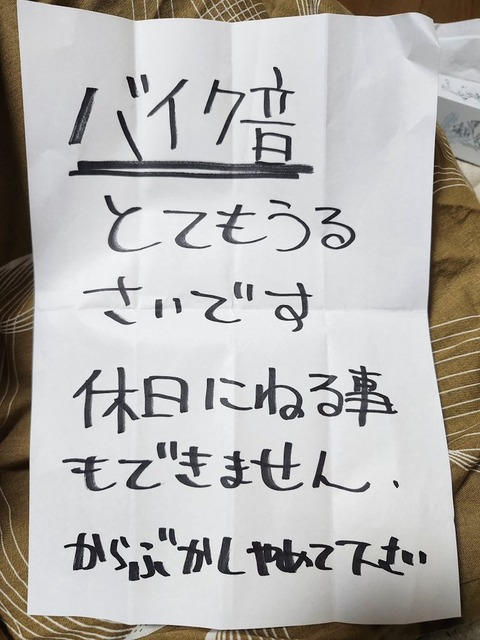 バイク音
とてもうる
さいです
休日にねる事
もできません.
からぶかしやめて下さい